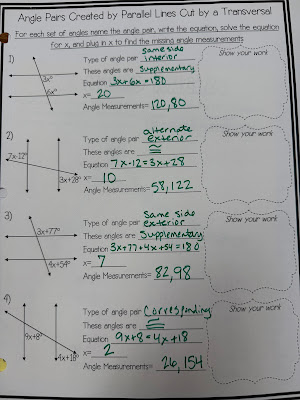 Angle Pairs Created by Parallel Lines Cut by a Transversal
For each set of angles name the angle pair, write the equation, solve the equation
for x, and plug in x to find the missing angle measurements
1)
3x°
6x°
Type of angle pair same side interior
These angles are supplementary
Equation 3x+6x=180
x= 20
Angle Measurements= 120, 80
Show your work
2)
7x-12°
3x+28°
Type of angle pair alternate exterior
These angles are ≅
Equation 7x-12=3x+28
x= 10
Angle Measurements= 58, 122
Show your work
3)
3x+77°
4x+54°
Type of angle pair Same side exterior
These angles are Supplementary
Equation 3x+77+4x+54=180
x= 7
Angle Measurements= 82, 98
Show your work
4)
9x+8°
4x+18°
Type of angle pair Corresponding
These angles are ≅
Equation 9x+8=4x+18
x= 2
Angle Measurements= 26, 154
Show your work